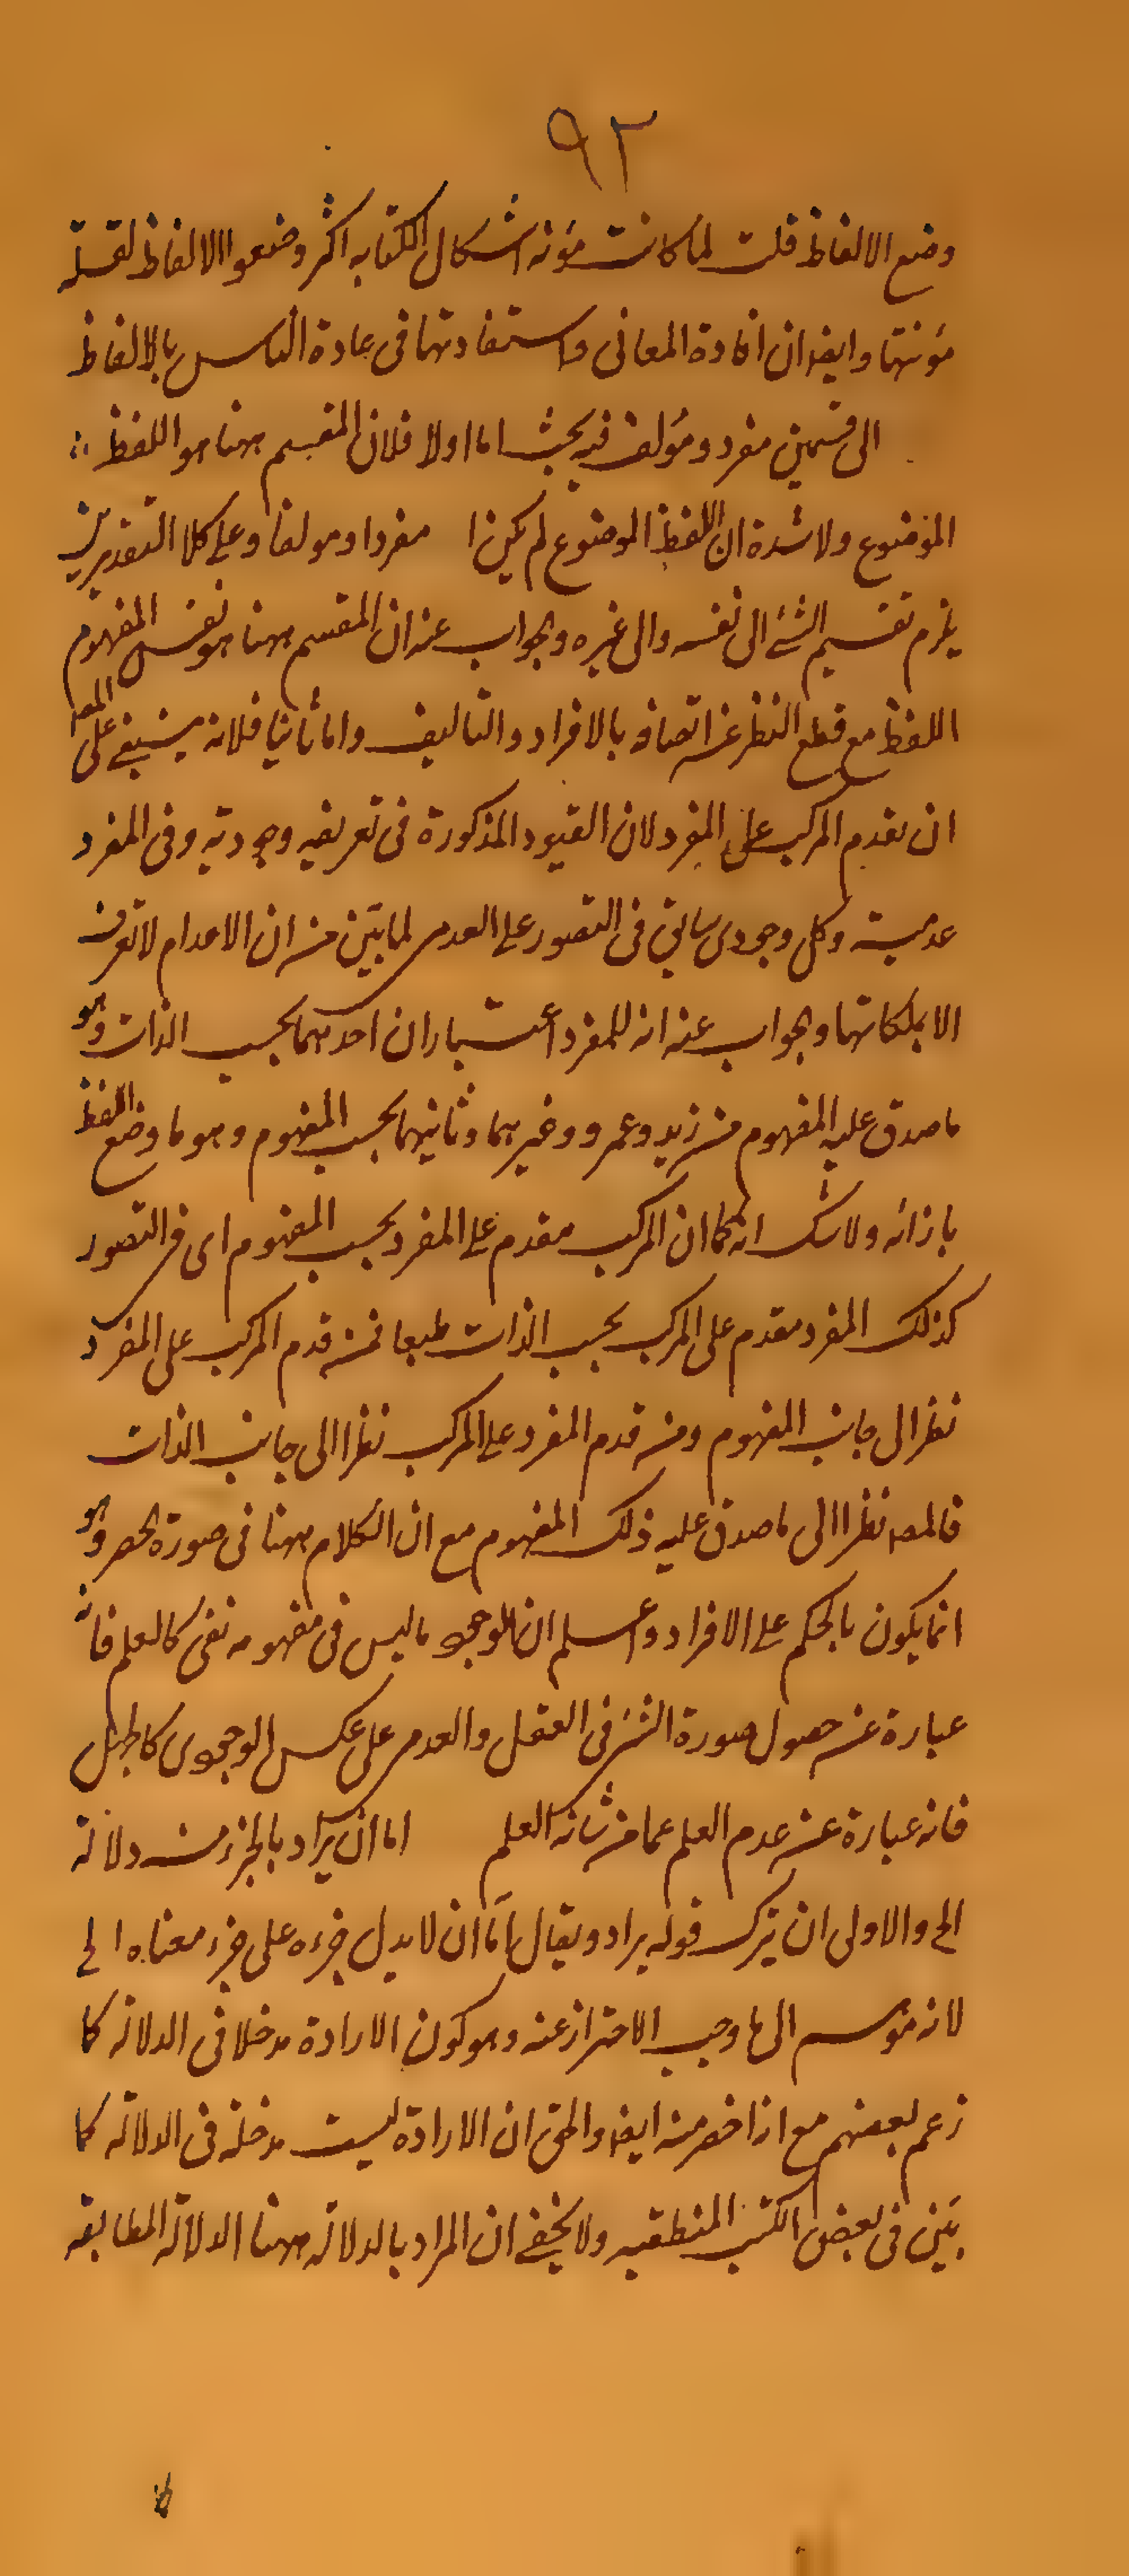 ٩٢
وضع الالفاظ قلت لما كانت مؤنة اشكال الكتابة اكثر وضعوا الالفاظ لقلة
مؤنتها وايضا ان افادة المعانى واستفادتها فى عادة الناس بالالفاظ
الى قسمين مفرد ومؤلف فيه بحث اما اولا فلان المقسم ههنا هو اللفظ
الموضوع ولا شدة ان اللفظ الموضوع لم يكن ا مفردا ومولفا وعلى كلا التقديرين
يلزم تقسيم الشئ الى نفسه والى غيره والجواب عنه ان المقسم ههنا هو نفس المفهوم
اللفظ مع قطع النظر عن اتصافه بالافراد والتاليف واما ثانيا فلانه ينبغى على المصـ
ان يقدم المركب على المفرد لان القيود المذكورة فى تعريفه وجودية وفى المفرد
عدمية وكل وجودى سابق فى التصور على العدمى لما بيّن من ان الاعدام لا تعرف
الا بملكاتها والجواب عنه انه للمفرد اعتباران احدهما بحسب الذات وهو
ما صدق عليه المفهوم من زيد وعمرو وغيرهما وثانيهما بحسب المفهوم وهو ما وضع اللفظ
بازائه ولا شك انه كما ان المركب مقدم على المفرد بحسب المفهوم اى فى التصور
كذلك المفرد مقدم على المركب بحسب الذات طبعا فمن قدم المركب على المفرد
نظر الى جانب المفهوم ومن قدم المفرد على المركب نظرا الى جانب الذات
فالمصـ نظرا الى ما صدق عليه ذلك المفهوم مع ان الكلام ههنا فى صورة الحصر وهو
انما يكون بالحكم على الافراد واعلم ان الوجودى ما ليس فى مفهومه نفى كالعلم فانه
عبارة عن حصول صورة الشئ فى العقل والعدمى على عكس الوجودى كالجهل
فانه عبارة عن عدم العلم عما من شانه العلم اما ان يراد بالجزء منه دلالة
الخ والاولى ان يترك قوله يراد ويقال اما ان لا يدل جزءه على جزء معناه الخ
لانه موسم الى ما وجب الاحتراز عنه وهو كون الارادة مدخلا فى الدلالة كما
زعم بعضهم مع انه اخصر منه ايضا والحق ان الارادة ليست مدخلة فى الدلالة كما
بيّن فى بعض الكتب المنطقيه ولا يخفى ان المراد بالدلالة ههنا الدلالة المطابقة